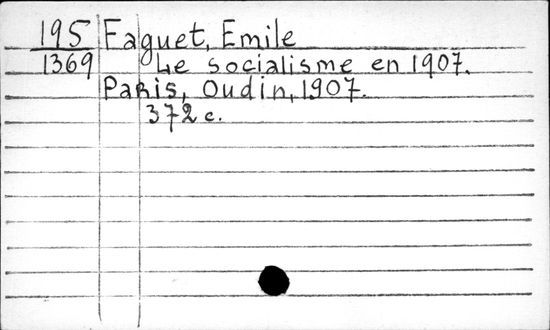 195 Faguet, Emile
1369 Le socialisme en 1907.
Paris, Oudin, 1907.
372 c.